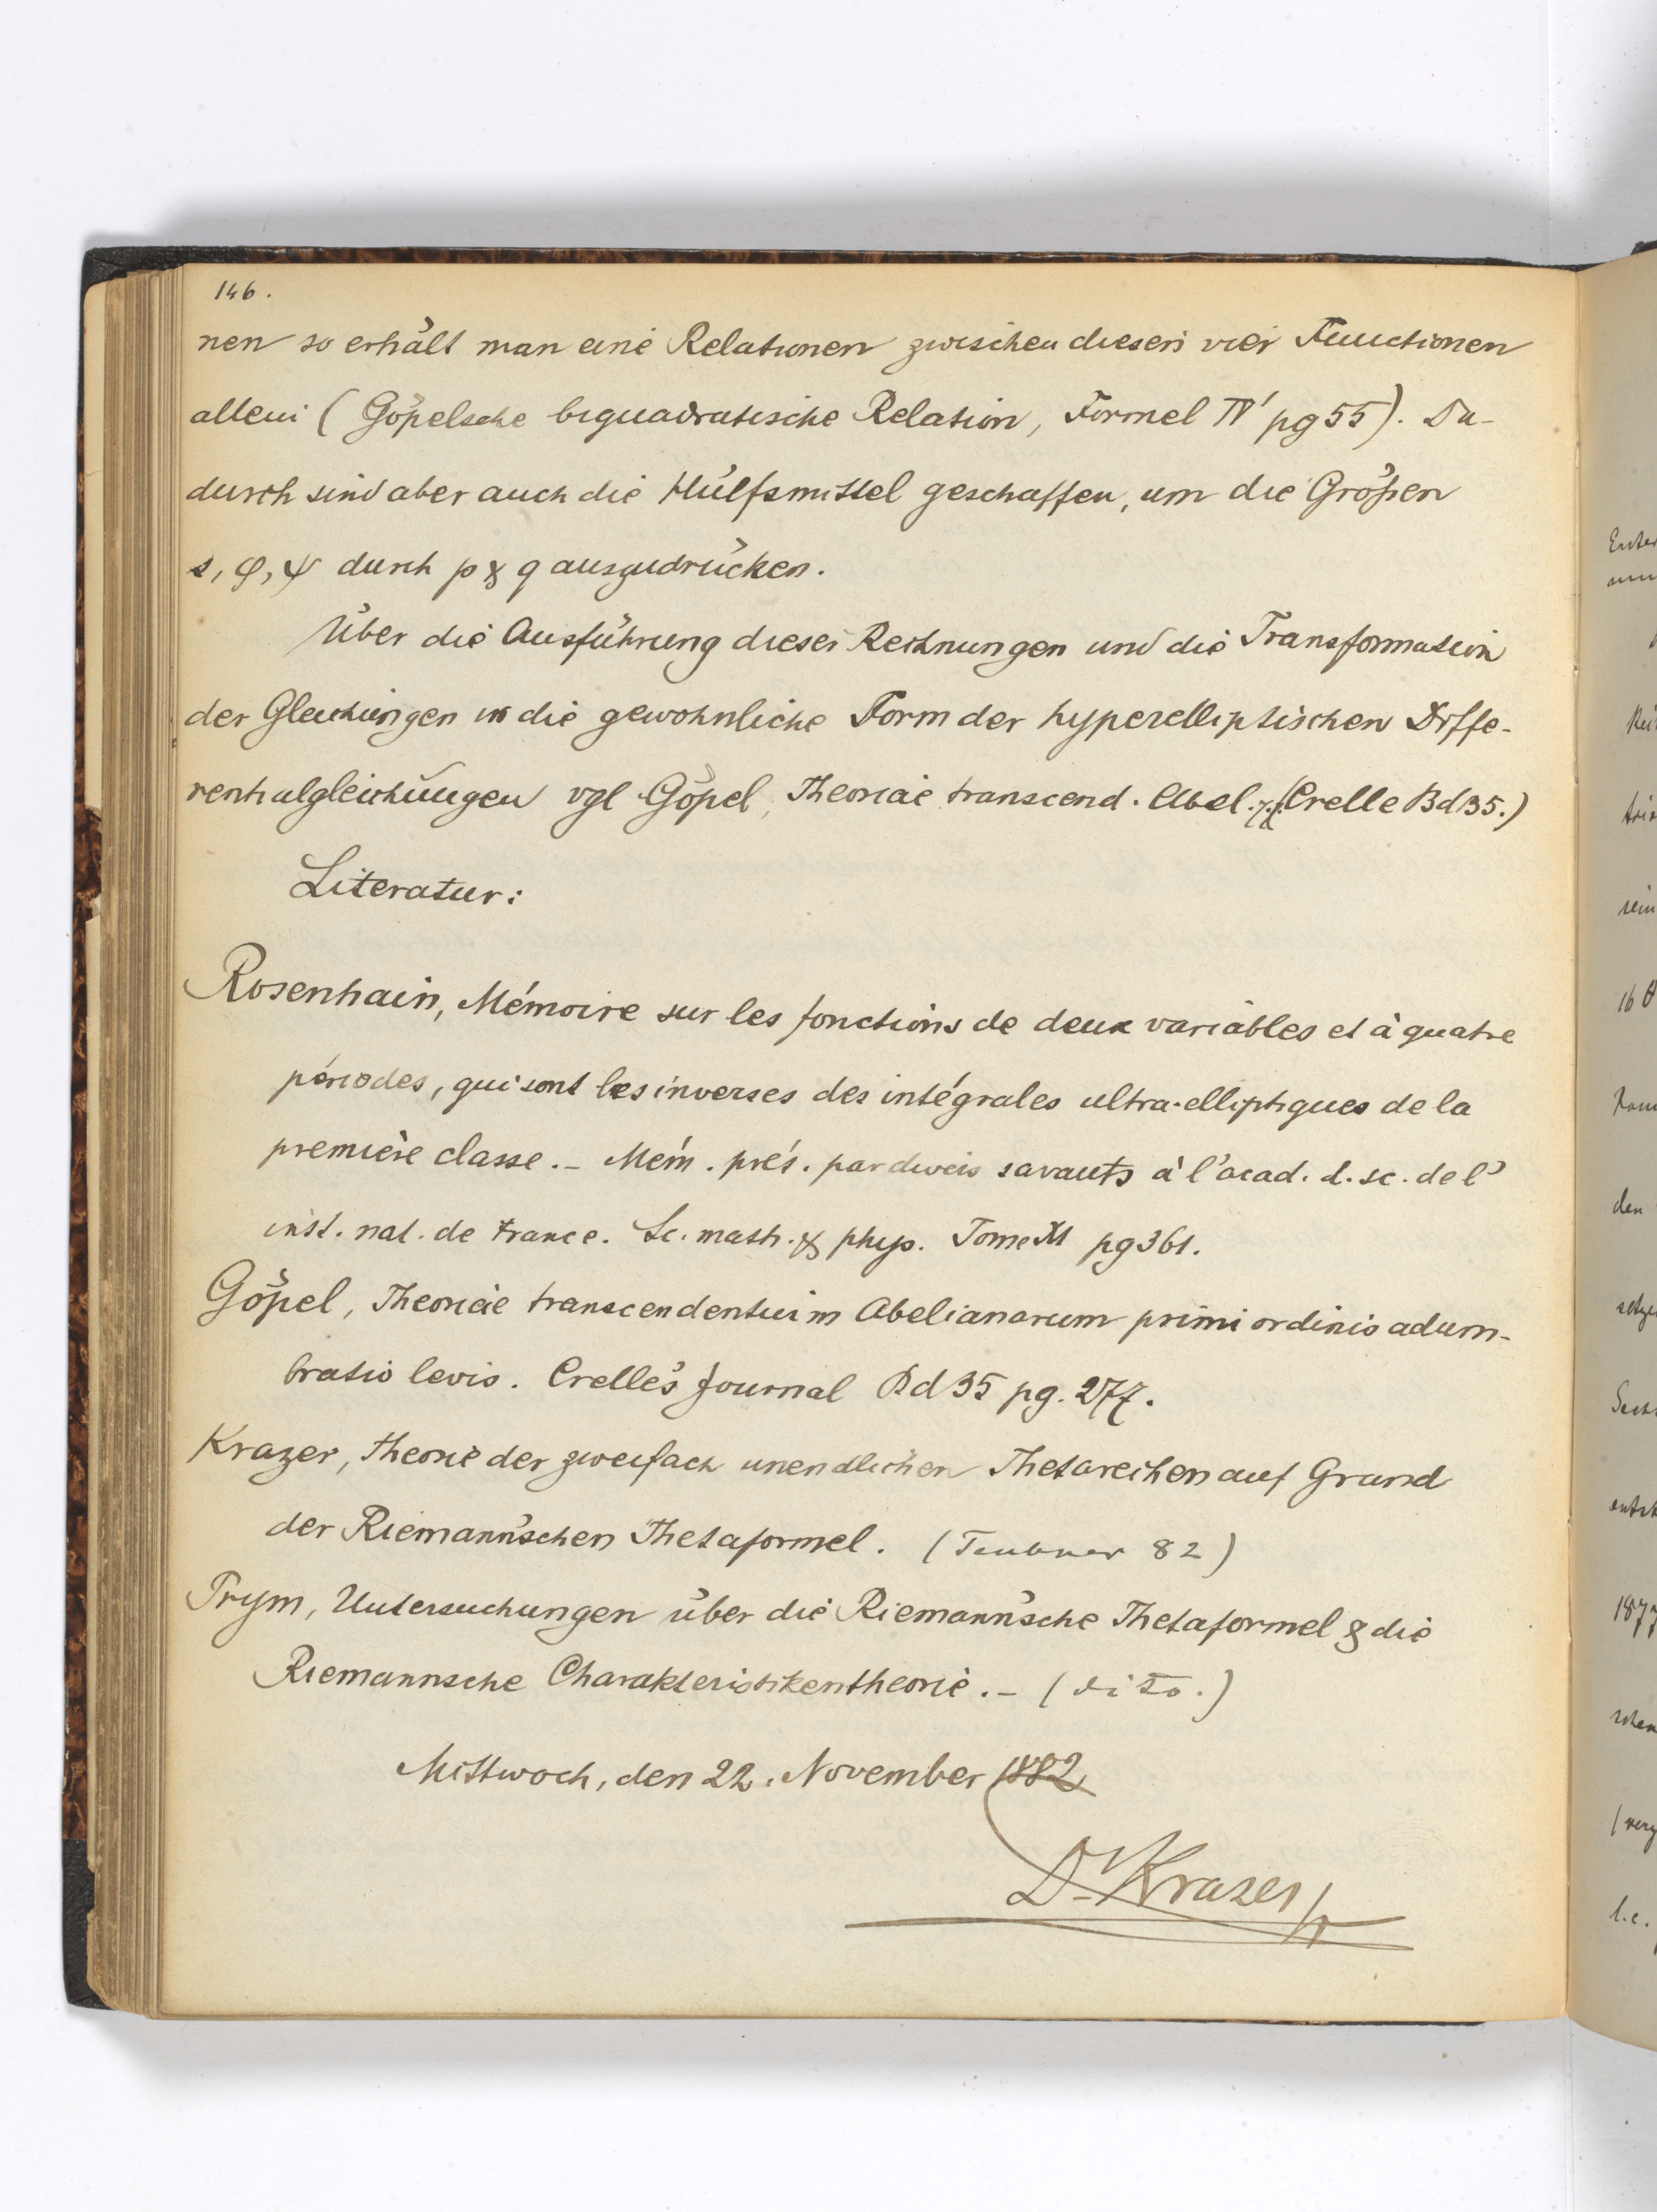 146.
nen so erhält man eine Relationen zwischen diesen vier Functionen
allein (Göpelsche biquadratische Relation, Formel IV' pg 55). Da-
durch sind aber auch die Hülfsmittel geschaffen, um die Größen
s, φ, ψ durch p & q auszudrücken.
Über die Ausführung dieser Rechnungen und die Transformation
der Gleichungen in die gewöhnliche Form der hyperelliptischen Diffe-
rentialgleichungen vgl Göpel, Theoriae transcend. Abel. (Crelle Bd 35.)
Literatur:
Rosenhain, Mémoire sur les fonctions de deux variables et à quatre
périodes, qui sont les inverses des intégrales ultra-elliptiques de la
première classe. – Mém. prés. par divers savants à l'acad. d. sc. de l'
inst. nat. de France. Sc. math. & phys. Tome XI pg 361.
Göpel, Theoriae transcendentium Abelianarum primi ordinis adum-
bratio levis. Crelle's Journal Bd 35 pg. 277.
Krazer, Theorie der zweifach unendlichen Thetareihen auf Grund
der Riemann'schen Thetaformel. (Teubner 82)
Prym, Untersuchungen über die Riemann'sche Thetaformel & die
Riemannsche Charakteristikentheorie. – (dito.)
Mittwoch, den 22. November 1882
Dr Krazer
16 θ
den
1877
l.c.